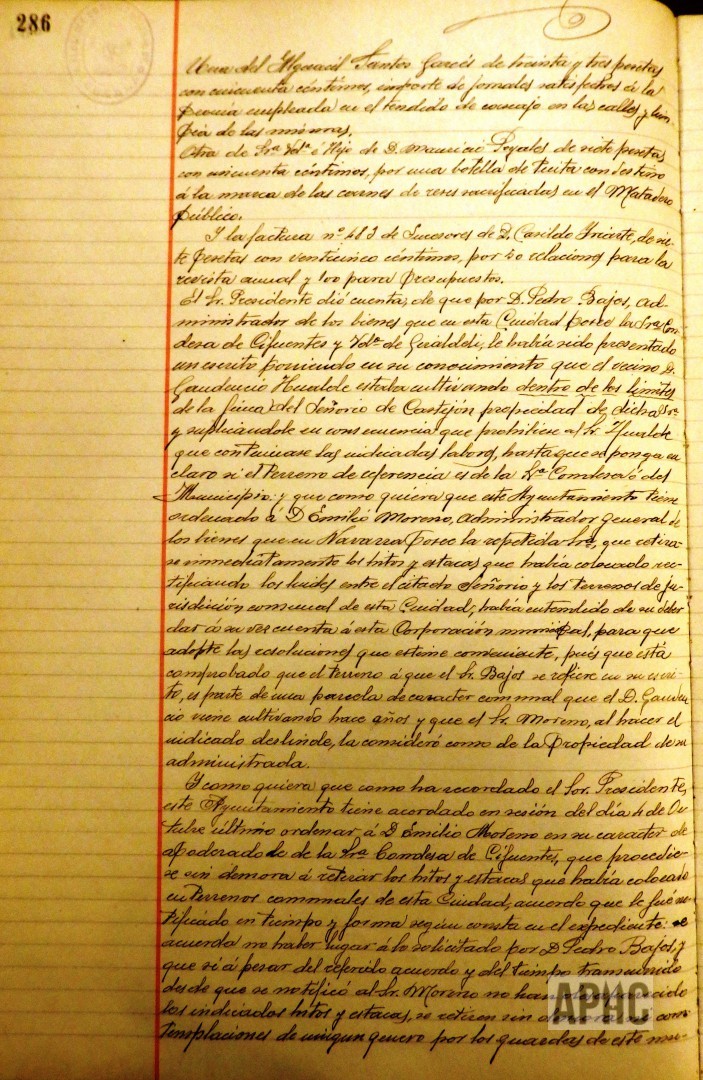 286
Una del Alguacil Santos Garcés de treinta y tres pesetas
con cincuenta céntimos, importe de jornales satisfechos á la
peonía empleada en el tendido de cascajo en las calles y lim-
pia de las mismas.
Otra de Sra. Vda. é Hijo de D. Mauricio Poyales de siete pesetas
con cincuenta céntimos, por una botella de tinta con destino
á la marca de las carnes de reses sacrificadas en el Matadero
público.
Y la factura nº 483 de Sucesores de D. Casildo Iriarte, de sie-
te pesetas con venticinco céntimos, por 50 relaciones para la
revista anual y 100 para Presupuestos.
El Sr. Presidente dió cuenta, de que por D. Pedro Bajos, ad-
ministrador de los bienes que en esta Ciudad posee la Sra. Con-
desa de Cifuentes y Vda. de Giraldeli, le había sido presentado
un escrito poniendo en su conocimiento que el vecino D.
Gaudencio Hualde estaba cultivando dentro de los límites
de la finca del Señorío de Castejón propiedad de dicha Sra.
y suplicándole en consecuencia que prohibiese al Sr. Hualde
que continuase las indicadas labores, hasta que se ponga en
claro si el terreno de referencia es de la Sra. Condesa ó del
Municipio: y que como quiera que este Ayuntamiento tiene
ordenado á D. Emilio Moreno, administrador general de
los bienes que en Navarra posee la repetida Sra., que retira-
se inmediatamente los hitos y estacas que había colocado rec-
tificando los lindes entre el citado Señorío y los terrenos de ju-
risdicción comunal de esta Ciudad, había entendido de su deber
dar á su vez cuenta á esta Corporación municipal, para que
adopte las resoluciones que estime conveniente, pués que está
comprobado que el terreno á que el Sr. Bajos se refiere en su escri-
to, es parte de una parcela de caracter comunal que el D. Gauden-
cio viene cultivando hace años y que el Sr. Moreno, al hacer el
indicado deslinde, la consideró como de la propiedad de su
administrada.
Y como quiera que como ha recordado el Sor. Presidente,
este Ayuntamiento tiene acordado en sesión del día 4 de Oc-
tubre último ordenar á D. Emilio Moreno en su caracter de
apoderado de la Sra. Condesa de Cifuentes, que procedie-
se sin demora á retirar los hitos y estacas que había colocado
en terrenos comunales de esta Ciudad, acuerdo que le fué no-
tificado en tiempo y forma según consta en el expediente: se
acuerda no haber lugar á lo solicitado por D. Pedro Bajos, y
que si á pesar del referido acuerdo y del tiempo transcurrido
desde que se notificó al Sr. Moreno no han desaparecido
los indicados hitos y estacas, se retiren sin demora ni con-
templaciones de ningun genero por los guardas de este mu-
APHC